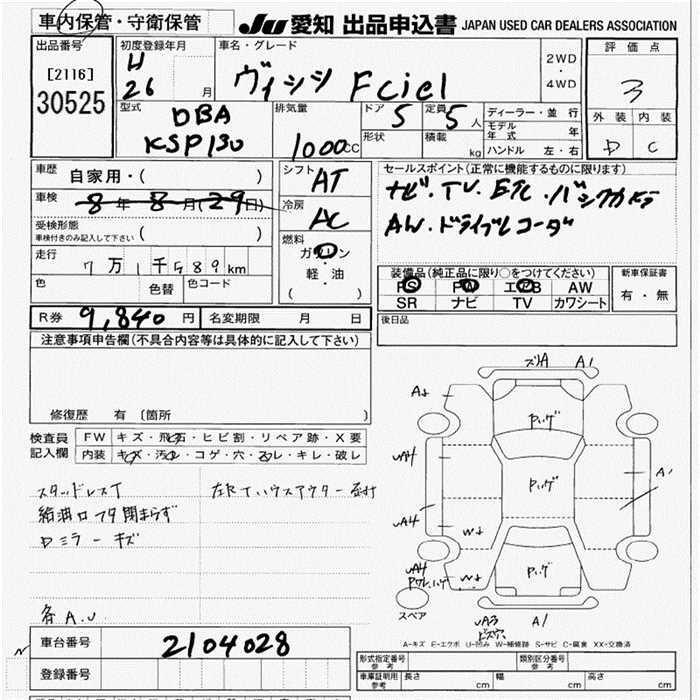 車内保管・守衛保管
JU 愛知 出品申込書 JAPAN USED CAR DEALERS ASSOCIATION
出品番号
[2116]
30525
初度登録年月
H
26 月
車名・グレード
ヴィッツ F ciel
2WD
・
4WD
評価点
3
外装 内装
D C
型式
DBA
KSP130
排気量
1000cc
ドア 5
形状
定員 5人
積載 kg
ディーラー・並行
モデル年式 年
ハンドル 左・右
車歴 自家用・( )
車検 8年8月(29日)
受検形態
車検付きのみ記入して下さい ( )
走行 7万1千589km
色 色替 色コード
シフト AT
冷房 AC
燃料
ガソリン
・
軽・油
( )
セールスポイント(正常に機能するものに限ります)
ナビ・TV・ETC・バックカメラ
AW・ドライブレコーダ
装備品(純正品に限り○をつけてください)
PS PW エアB AW
SR ナビ TV カワシート
新車保証書
有・無
R券 9,840円 名変期限 月 日
後日品
注意事項申告欄(不具合内容等は具体的に記入して下さい)
修復歴 有 [箇所 ]
検査員
記入欄
FW キズ・飛石・ヒビ割・リペア跡・X要
内装 キズ・汚れ・コゲ・穴・スレ・キレ・破レ
スタッドレスT
給油口フタ閉まらず
Dミラーキズ
各A.U
ズリA A1
A1
Pハゲ
Pハゲ
Pハゲ
A1
UA4
UA4
W
UA4
W
スペア
UA3
A1
A-キズ E-エクボ U-凹み W-補修跡 S-サビ C-腐食 XX-交換済
車台番号 2104028
登録番号
形式指定番号
参考
類別区分番号
参考
車庫証明用
参考
長さ cm 幅 cm 高さ cm